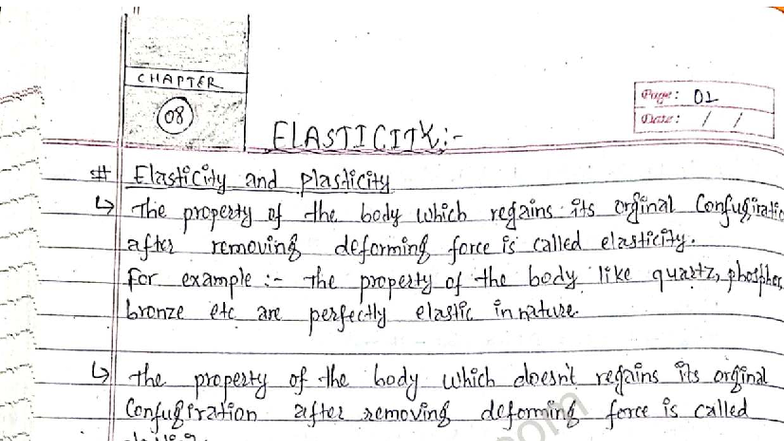 CHAPTER
08
Page: 01
Date: / /
ELASTICITY:-
# Elasticity and Plasticity
↳ The property of the body which regains its orginal
after removing deforming force is called elasticity.
For example :- the property of the body like quartz,
bronze etc are perfectly elastic in nature.
↳ the property of the body which doesn't regains its orginal
Confugiration after removing deforming force is called